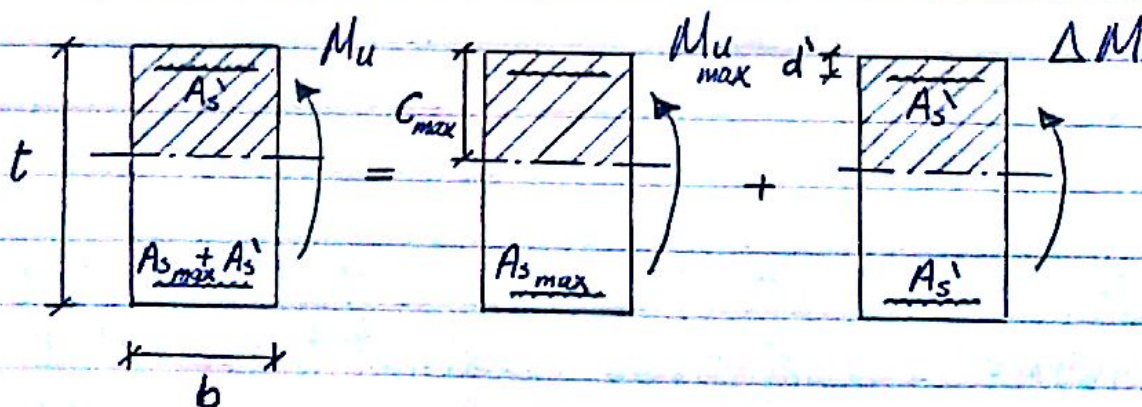 t
b
As'
As max + As'
Mu
=
Cmax
As max
Mu max
+
d'
As'
As'
ΔM